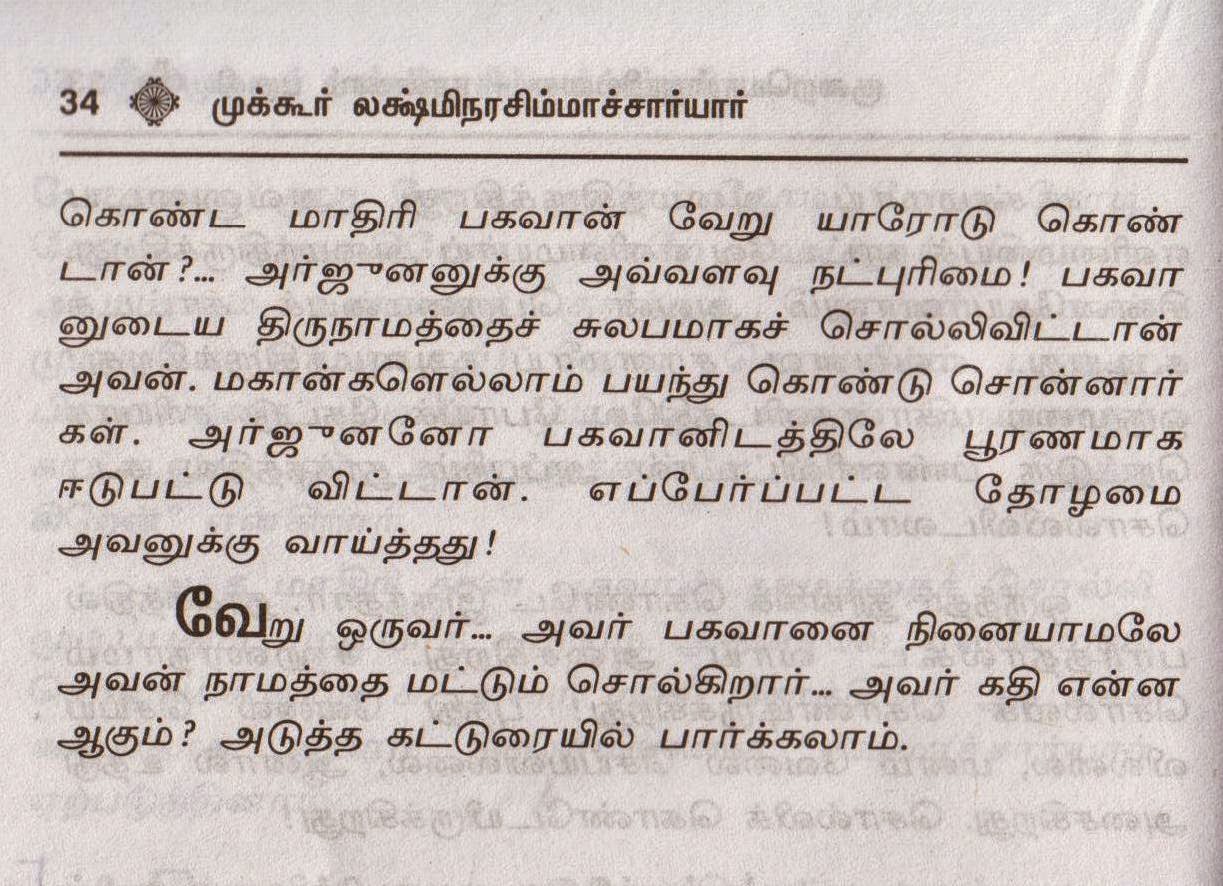 34 முக்கூர் லக்ஷ்மிநரசிம்மாச்சார்யார்
கொண்ட மாதிரி பகவான் வேறு யாரோடு கொண்
டான்?... அர்ஜுனனுக்கு அவ்வளவு நட்புரிமை! பகவா
னுடைய திருநாமத்தைச் சுலபமாகச் சொல்லிவிட்டான்
அவன். மகான்களெல்லாம் பயந்து கொண்டு சொன்னார்
கள். அர்ஜுனனோ பகவானிடத்திலே பூரணமாக
ஈடுபட்டு விட்டான். எப்பேர்ப்பட்ட தோழமை
அவனுக்கு வாய்த்தது!
வேறு ஒருவர்... அவர் பகவானை நினையாமலே
அவன் நாமத்தை மட்டும் சொல்கிறார்... அவர் கதி என்ன
ஆகும்? அடுத்த கட்டுரையில் பார்க்கலாம்.